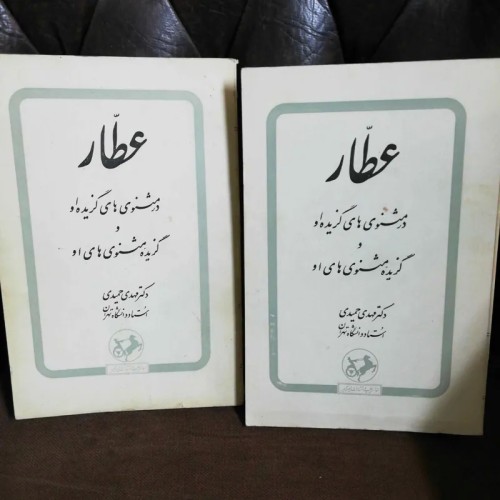 عطّار
در مثنوی های گزیده او
و
گزیده مثنوی های او
دکتر مهدی حمیدی
استاد دانشگاه تهران
عطّار
در مثنوی های گزیده او
و
گزیده مثنوی های او
دکتر مهدی حمیدی
استاد دانشگاه تهران